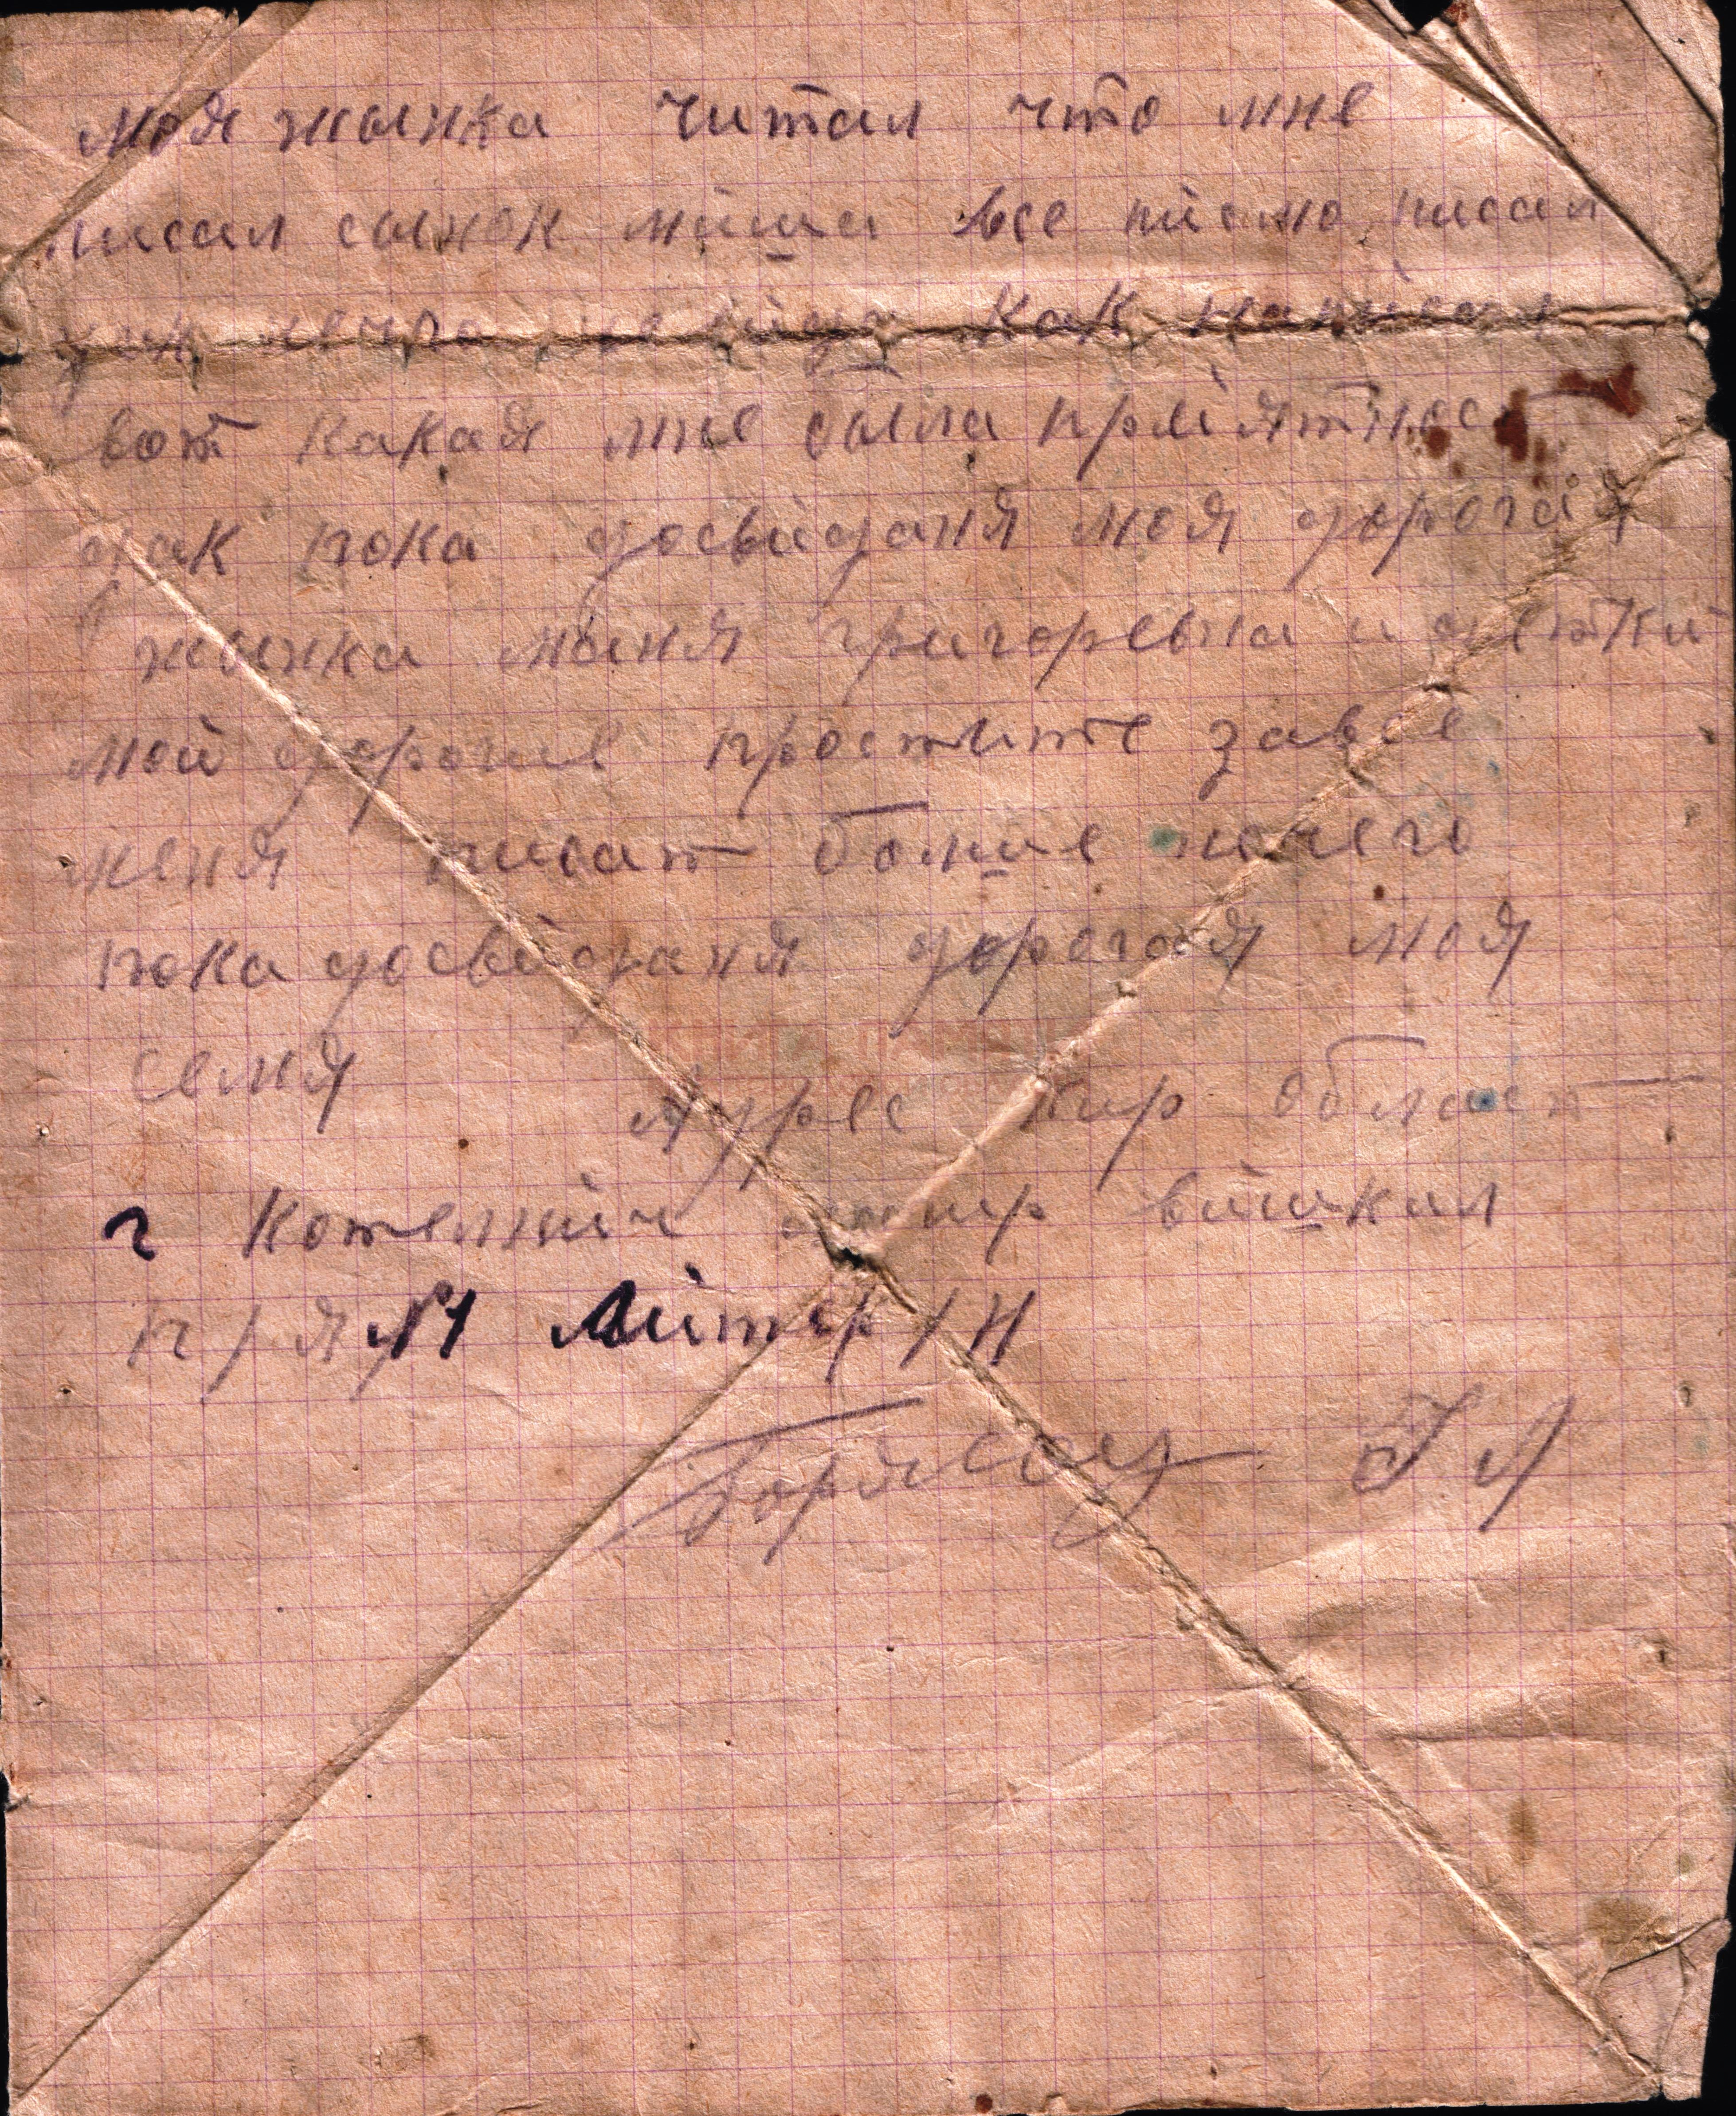 моя жынка читал что мне
писал сынок миша все писмо писал
как написал
вот какая мне была приятност
так пока досвиданя моя дорогая
жынка маня григоревна и детки
мои дорогие простите завсе
меня писат болше нечего
пока досвиданя дорогая моя
семя Адрес кир област
г Котелнич вишкил
п/я №1 Литер/Н